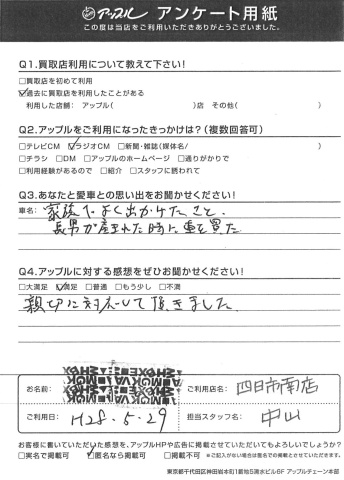 アップル アンケート用紙
この度は当店をご利用いただきありがとうございました。
Q1.買取店利用について教えて下さい!
□買取店を初めて利用
☑過去に買取店を利用したことがある
利用した店舗: アップル( )店 その他( )
Q2.アップルをご利用になったきっかけは?(複数回答可)
□テレビCM ☑ラジオCM □新聞・雑誌(媒体名/ )
□チラシ □DM □アップルのホームページ □通りがかりで
□利用経験があるので □紹介 □スタッフに誘われて
Q3.あなたと愛車との思い出をお聞かせください!
車名: 家族でよく出かけたこと、
長男が産まれた時に車を買った
Q4.アップルに対する感想をぜひお聞かせください!
□大満足 ☑満足 □普通 □もう少し □不満
親切に対応して頂きました
お名前: ご利用店名: 四日市南店
ご利用日: H28.5.29 担当スタッフ名: 中山
お客様に書いていただいた感想を、アップルHPや広告に掲載させていただいてもよろしいでしょうか?
□実名で掲載可 ☑匿名なら掲載可 □掲載不可 ※ご記入がない場合は匿名での掲載とさせていただきます。
東京都千代田区神田岩本町1番地5清水ビル6F アップルチェーン本部